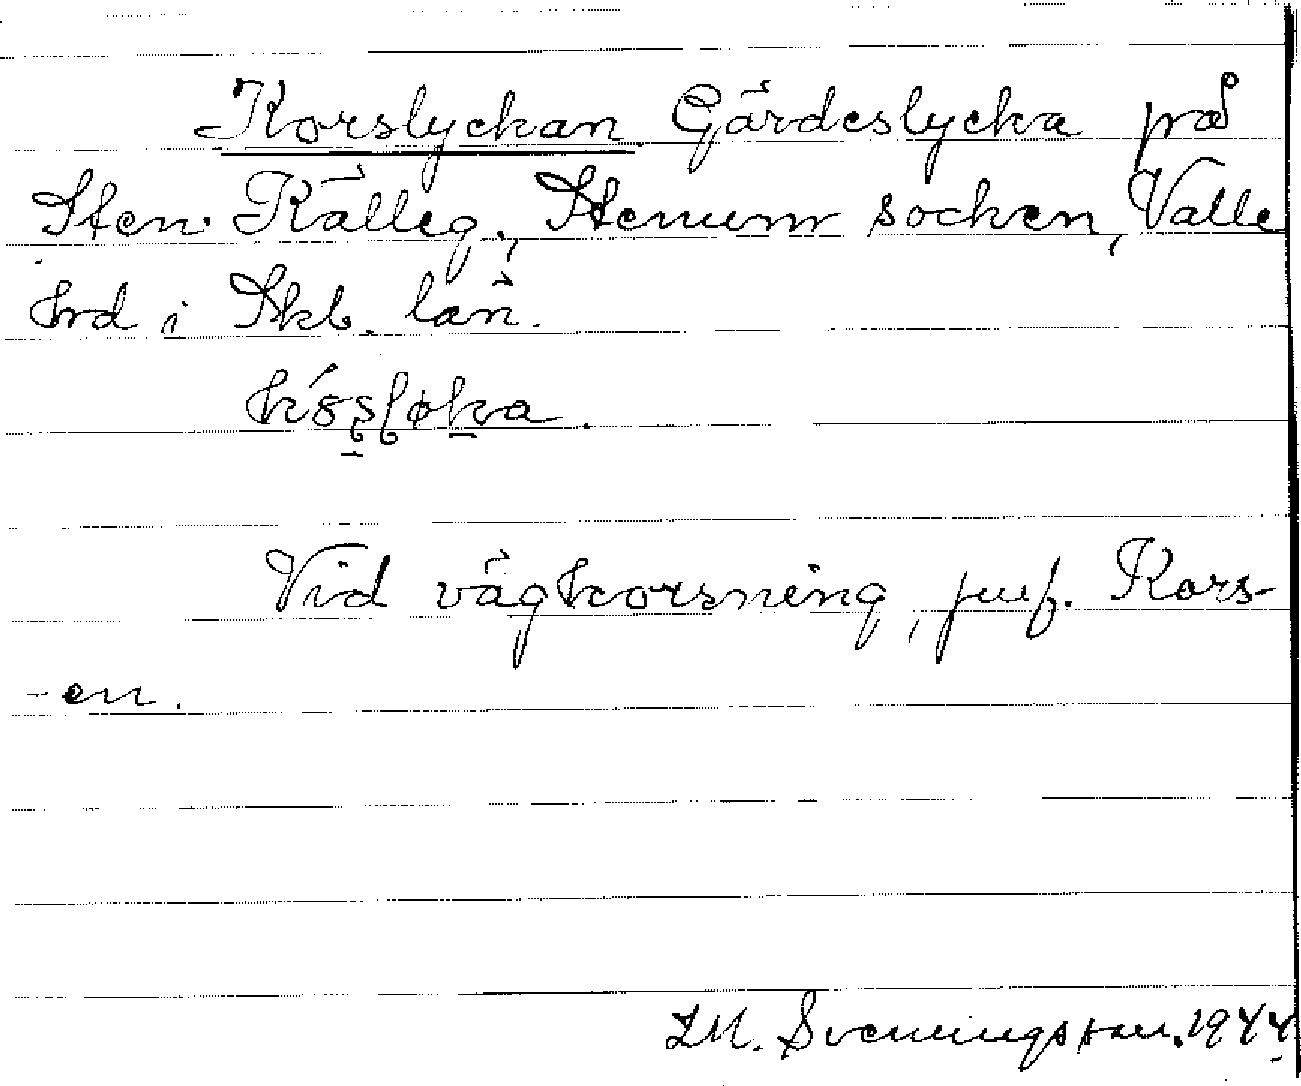 Korslyckan Gärdeslycka på
Sten Källeg., Stenum socken, Valle
hrd i Skb. län.
Vid vägkorsning, jmf. Kors-
-en.
L.M. Svenningsson. 1944